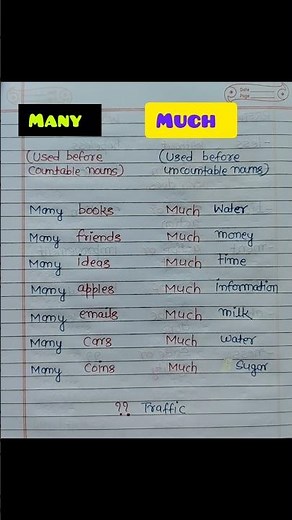 Date
Page
MANY MUCH
(Used before (Used before
countable nouns) uncountable nouns)
Many books Much Water
Many friends Much money
Many ideas Much time
Many apples Much information
Many emails Much milk
Many Cars Much Water
Many Coins Much Sugar
?? Traffic